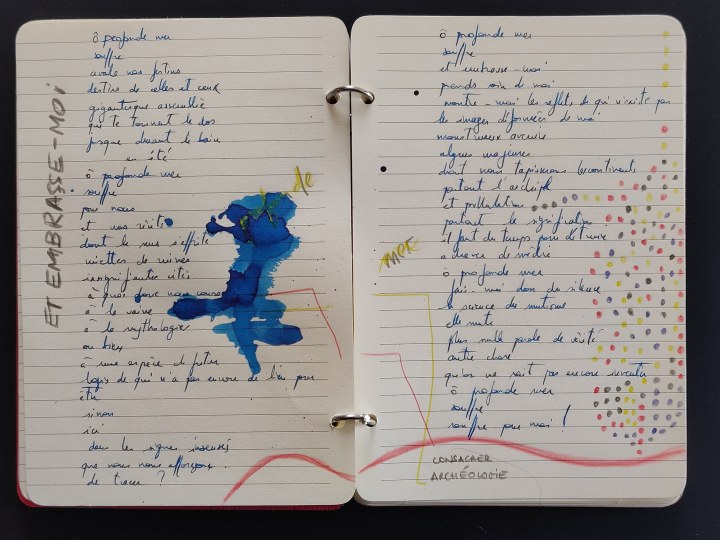 ET EMBRASSE-MOI
ô profonde mer
souffre
avale nos festins
destins de celles et ceux
gigantesque assemblée
qui te tournent le dos
jusque devant le bain
en été
ô profonde mer
souffre
pour nous
et nos vérités
dont le sens s'effrite
miettes de ruines
insignifiantes
à quoi donc nous
à la
à la mythologie
ou bien
à une espèce de futur
logis de qui n'a pas encore de lieu pour
être
sinon
ici
dans les signes insensés
que nous nous efforçons
de tracer ?
ô profonde mer
souffre
et embrasse-moi
prends soin de moi
montre-moi les reflets de qui n'existe pas
les images déformées de moi
monstrueux
algues majeures
dont nous tapisserons les continents
partout l'archipel
et
partout la signification
il faut du temps pour
à
mer
ô profonde mer
fais-moi don du silence
la science du mutisme
elle
plus nulle parole de vérité
autre chose
qu'on ne sait pas encore inventer
ô profonde mer
souffre
souffre pour moi !
CONSACRER
ARCHÉOLOGIE